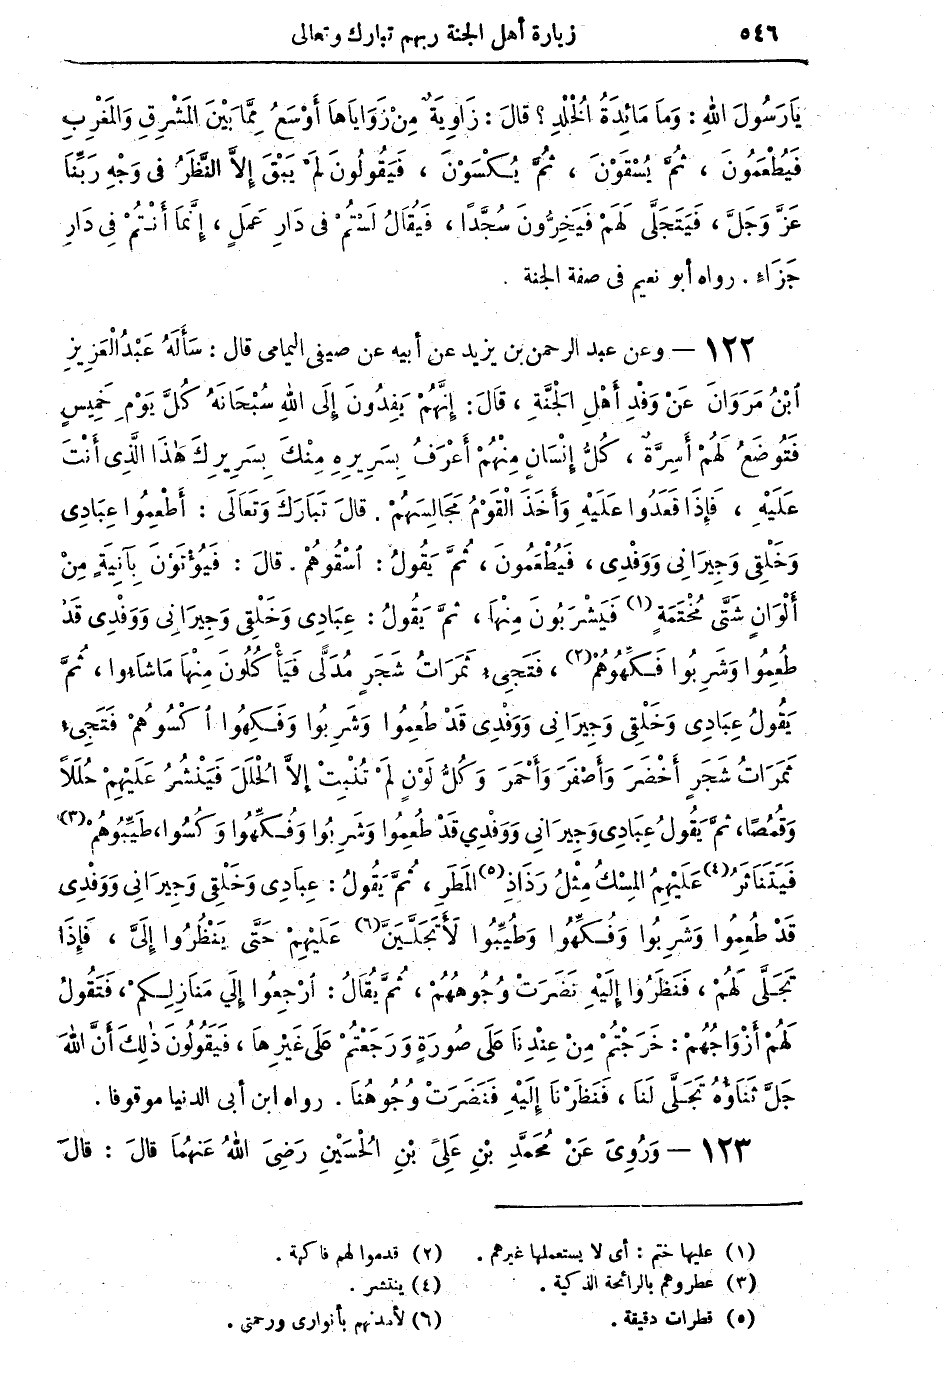 ٥٤٦ زيارة أهل الجنة ربهم تبارك وتعالى
يَارَسُولَ اللهِ : وَمَا مَائِدَةُ الْخُلْدِ ؟ قَالَ : زَاوِيَةٌ مِنْ زَوَايَاهَا أَوْسَعُ مِمَّا بَيْنَ الْمَشْرِقِ وَالْمَغْرِبِ
فَيُطْعَمُونَ ، ثُمَّ يُسْقَوْنَ ، ثُمَّ يُكْسَوْنَ ، فَيَقُولُونَ لَمْ يَبْقَ إِلاَّ النَّظَرُ فى وَجْهِ رَبِّنَا
عَزَّ وَجَلَّ ، فَيَتَجَلَّى لَهُمْ فَيَخِرُّونَ سُجَّدًا ، فَيُقَالُ لَسْتُمْ فى دَارِ عَمَلٍ ، إِنَّمَا أَنْتُمْ فى دَارِ
جَزَاءٍ . رواه أبو نعيم فى صفة الجنة .
١٢٢ — وعن عبد الرحمن بن يزيد عن أبيه عن صيفى اليمامى قال : سَأَلَهُ عَبْدُ الْعَزِيزِ
ابْنُ مَرَوَانَ عَنْ وَفْدِ أَهْلِ الجَنَّةِ ، قَالَ : إِنَّهُمْ يَفِدُونَ إِلَى اللهِ سُبْحَانَهُ كُلَّ يَوْمِ خَمِيسٍ
فَتُوضَعُ لَهُمْ أَسِرَّةٌ ، كُلُّ إِنْسَانٍ مِنْهُمْ أَعْرَفُ بِسَرِيرِهِ مِنْكَ بِسَرِيرِكَ هٰذَا الَّذِى أَنْتَ
عَلَيْهِ ، فَإِذَا قَعَدُوا عَلَيْهِ وَأَخَذَ الْقَوْمُ مَجَالِسَهُمْ . قَالَ تَبَارَكَ وَتَعَالَى : أَطْعِمُوا عِبَادِى
وَخَلْقِى وَجِيرَانِى وَوَفْدِى ، فَيُطْعَمُونَ ، ثُمَّ يَقُولُ : اسْقُوهُمْ . قَالَ : فَيُؤْتَوْنَ بِآنِيَةٍ مِنْ
أَلْوَانٍ شَتَّى مُخْتَمَةٍ (١) فَيَشْرَبُونَ مِنْهَا ، ثُمَّ يَقُولُ : عِبَادِى وَخَلْقِى وَجِيرَانِى وَوَفْدِى قَدْ
طُعِمُوا وَشَرِبُوا فَكِّهُوهُمْ (٢) ، فَتَجِىءُ ثَمَرَاتُ شَجَرٍ مُدَلًّى فَيَأْكُلُونَ مِنْهَا مَاشَاءُوا ، ثُمَّ
يَقُولُ عِبَادِى وَخَلْقِى وَجِيرَانِى وَوَفْدِى قَدْ طُعِمُوا وَشَرِبُوا وَفُكِّهُوا اكْسُوهُمْ فَتَجِىءُ
ثَمَرَاتُ شَجَرٍ أَخْضَرَ وَأَصْفَرَ وَأَحْمَرَ وَكُلُّ لَوْنٍ لَمْ تُنْبِتْ إِلاَّ الْحُلَلَ فَيَنْشُرُ عَلَيْهِمْ حُلَلاً
وَقُمُصًا ، ثُمَّ يَقُولُ عِبَادِى وَجِيرَانِى وَوَفْدِي قَدْ طُعِمُوا وَشَرِبُوا وَفُكِّهُوا وَكُسُوا ، طَيِّبُوهُمْ (٣)
فَيَتَنَاثَرُ (٤) عَلَيْهِمُ المِسْكُ مِثْلُ رَذَاذِ (٥) المَطَرِ ، ثُمَّ يَقُولُ : عِبَادِى وَخَلْقِى وَجِيرَانِى وَوَفْدِى
قَدْ طُعِمُوا وَشَرِبُوا وَفُكِّهُوا وَطُيِّبُوا لَأَتَجَلَّيَنَّ (٦) عَلَيْهِمْ حَتَّى يَنْظُرُوا إِلَىَّ ، فَإِذَا
تَجَلَّى لَهُمْ ، فَنَظَرُوا إِلَيْهِ نَضَرَتْ وُجُوهُهُمْ ، ثُمَّ يُقَالُ : ارْجِعُوا إِلَي مَنَازِلِكُمْ ، فَتَقُولُ
لَهُمْ أَزْوَاجُهُمْ : خَرَجْتُمْ مِنْ عِنْدِنَا عَلَى صُورَةٍ وَرَجَعْتُمْ عَلَى غَيْرِهَا ، فَيَقُولُونَ ذٰلِكَ أَنَّ اللهَ
جَلَّ ثَنَاؤُهُ تَجَلَّى لَنَا ، فَنَظَرْنَا إِلَيْهِ فَنَضَرَتْ وُجُوهُنَا . رواه ابن أبى الدنيا موقوفا .
١٢٣ — وَرُوِىَ عَنْ مُحَمَّدِ بْنِ عَلِىِّ بْنِ الْحُسَيْنِ رَضِىَ اللهُ عَنْهُمَا قَالَ : قَالَ
(١) عليها ختم : أى لا يستعملها غيرهم . (٢) قدموا لهم فاكهة .
(٣) عطروهم بالرائحة الذكية . (٤) ينتشر .
(٥) قطرات دقيقة . (٦) لأمدنهم بأنوارى ورحمتى .